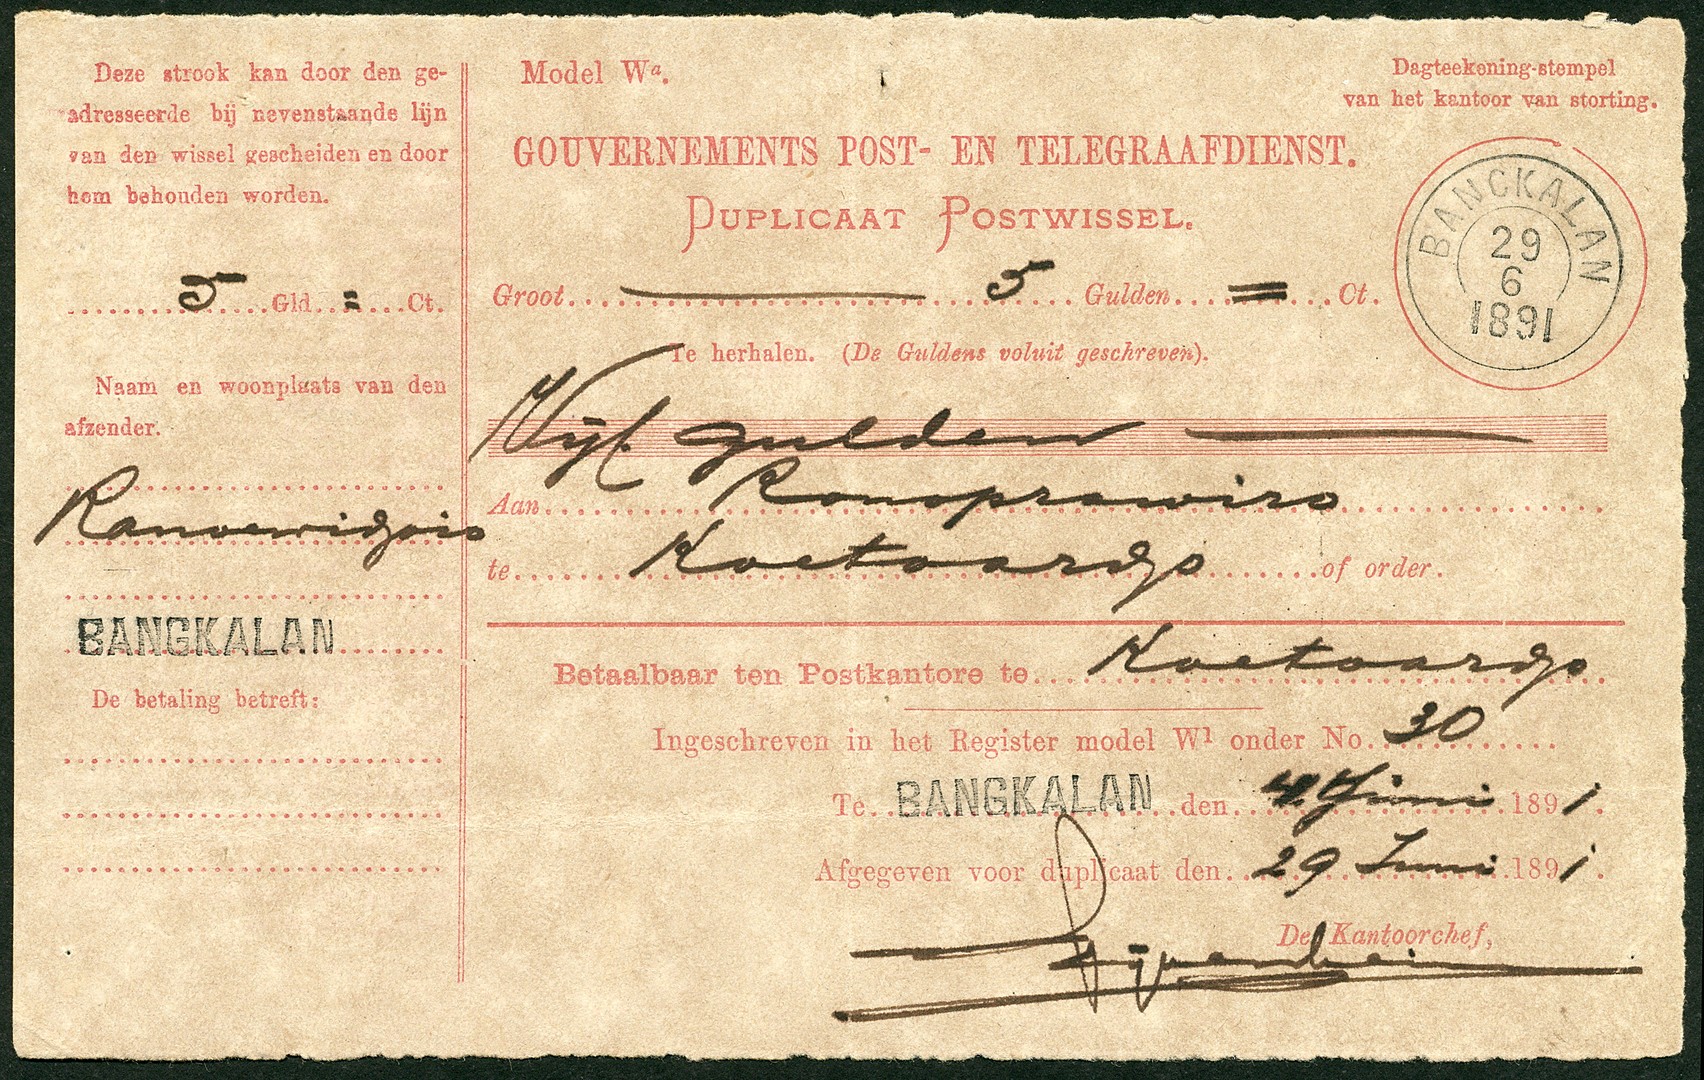 Deze strook kan door den ge-
adresseerde bij nevenstaande lijn
van den wissel gescheiden en door
hem behouden worden.
5 Gld. = Ct.
Naam en woonplaats van den
afzender.
BANGKALAN
De betaling betreft:
Model Wa.
Dagteekening-stempel
van het kantoor van storting.
GOUVERNEMENTS POST- EN TELEGRAAFDIENST.
DUPLICAAT POSTWISSEL.
BANGKALAN
29
6
1891
Groot 5 Gulden = Ct.
Te herhalen. (De Guldens voluit geschreven).
Vijf gulden
Aan Ronoprawiro
te Koetoardjo of order.
Betaalbaar ten Postkantore te Koetoardjo
Ingeschreven in het Register model W1 onder No. 30
Te BANGKALAN den Juni 1891.
Afgegeven voor duplicaat den 29 Juni 1891.
De Kantoorchef,